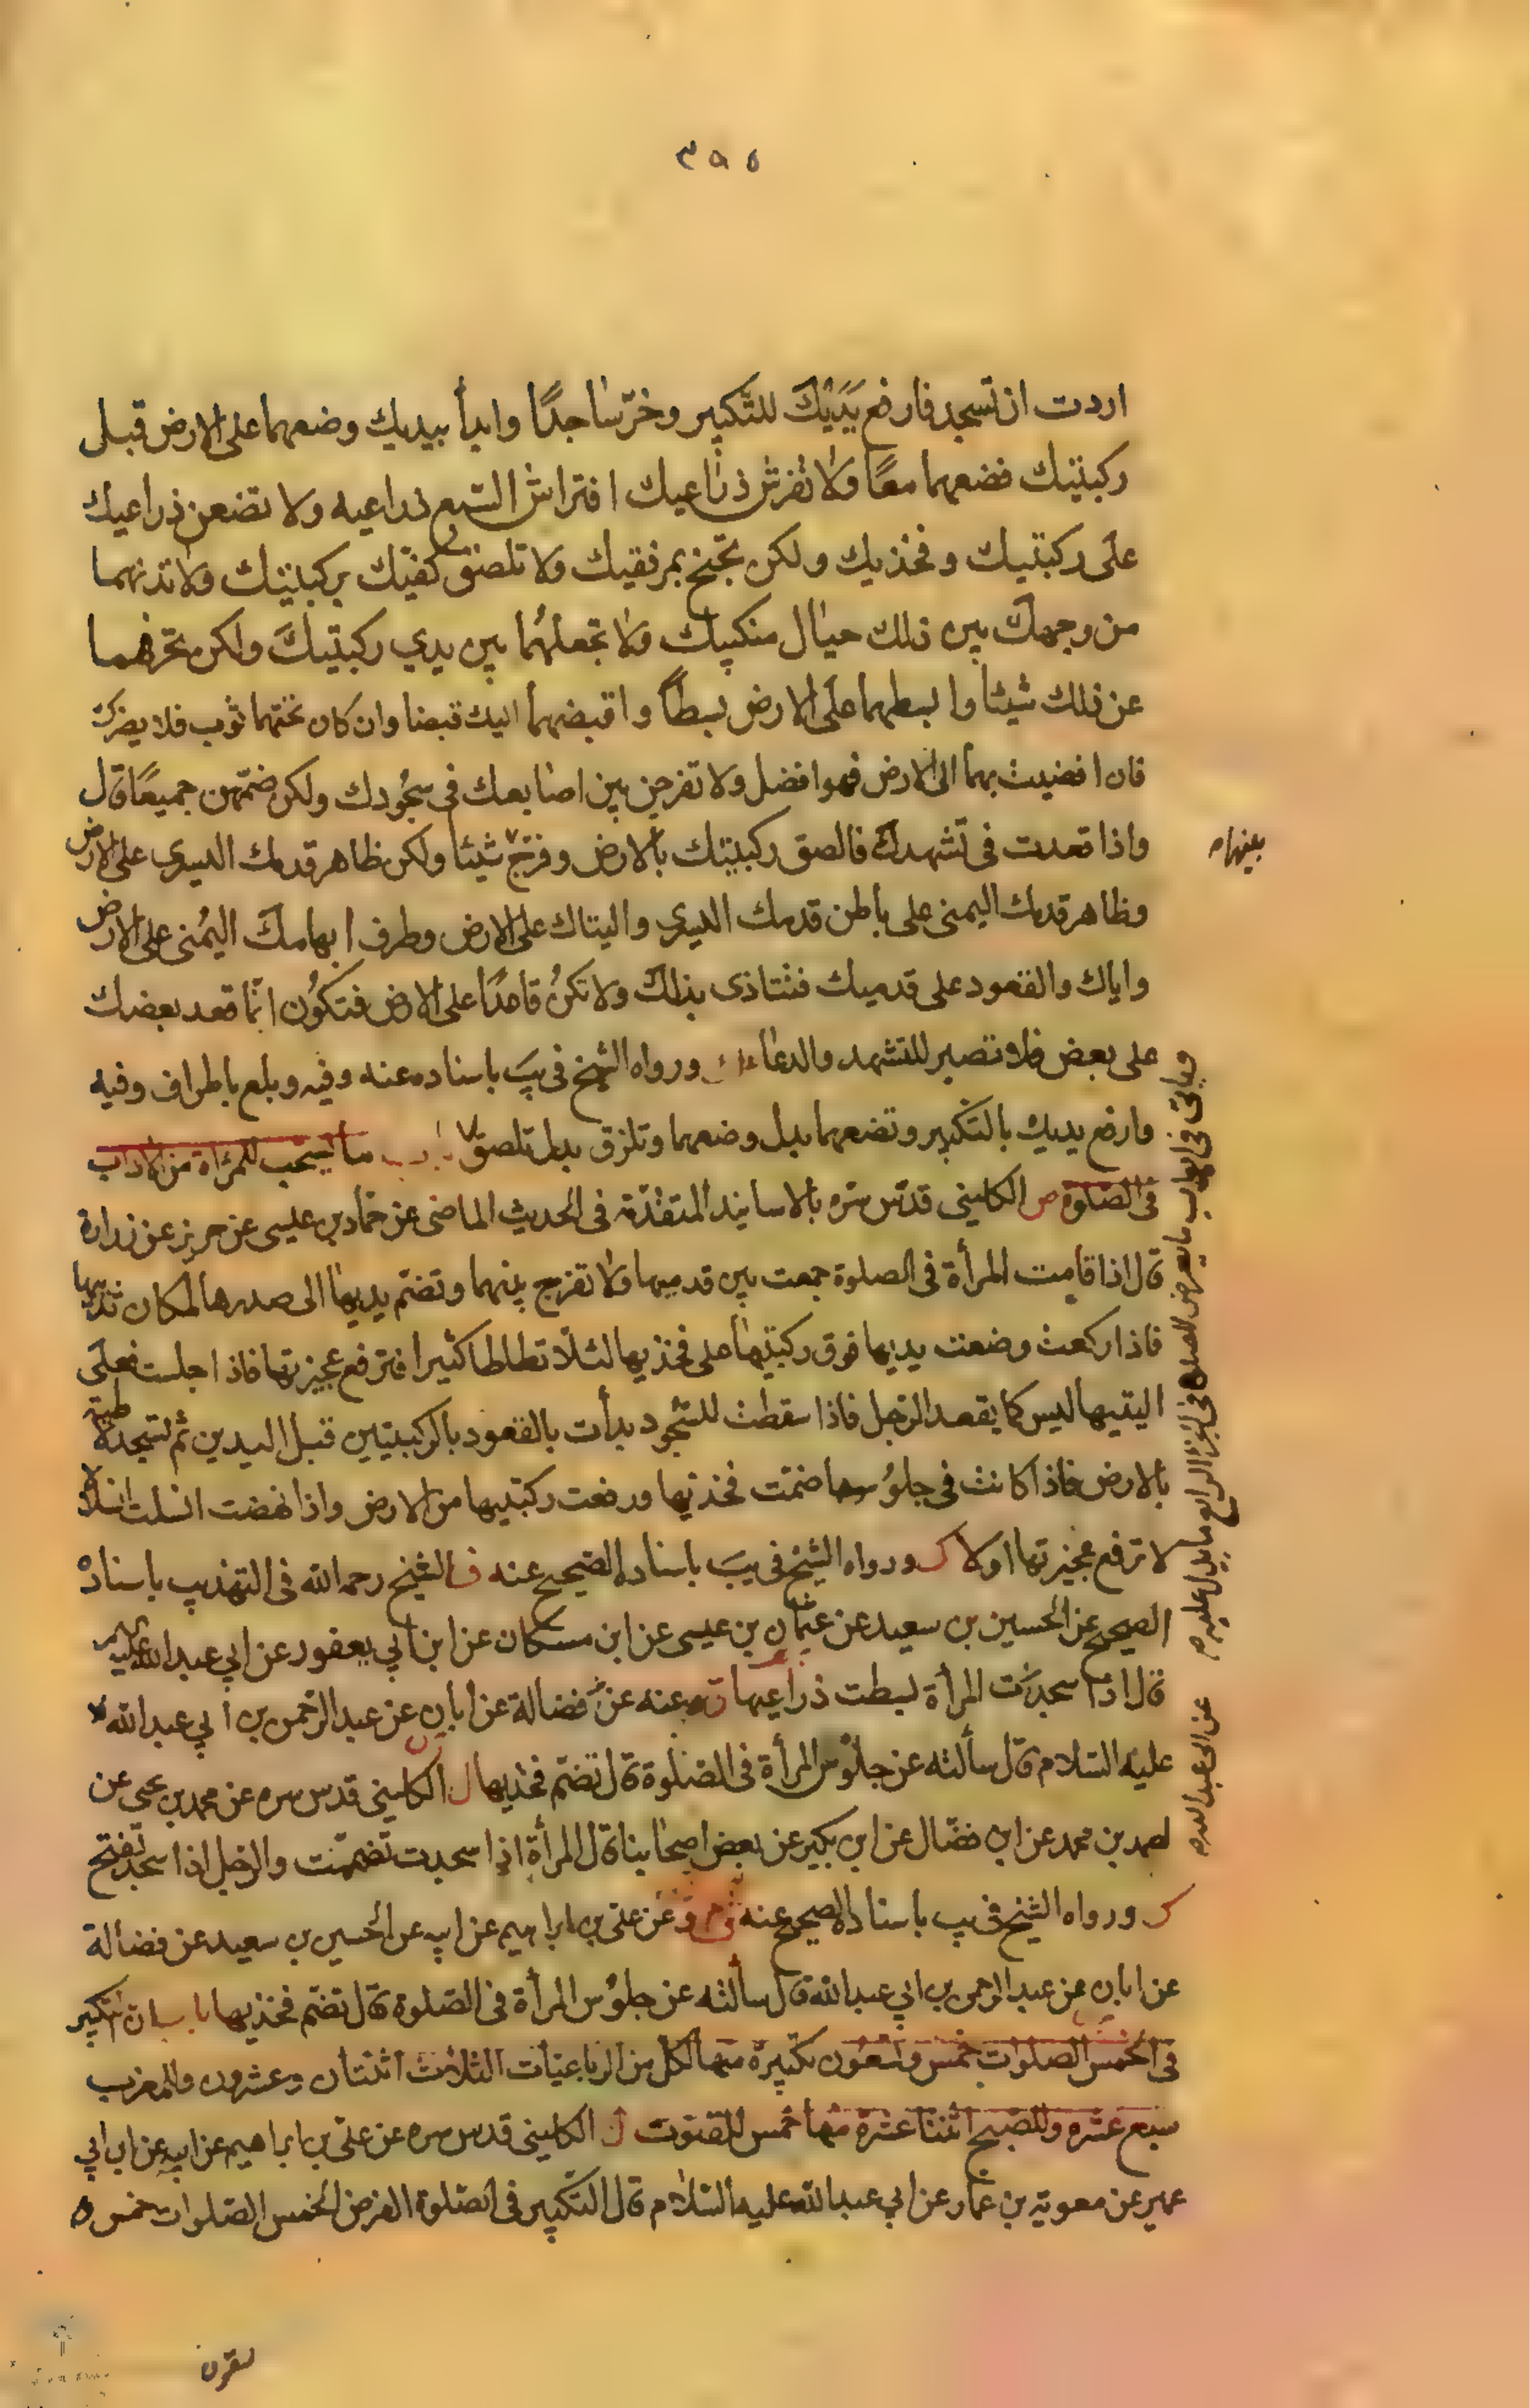 ٣٩٥
اردت ان تسجد فارفع يديك للتكبير وخرّ ساجدًا وابدأ بيديك وضعهما على الارض قبل
ركبتيك فضعهما معًا ولا تفرش ذراعيك افتراش السّبع ذراعيه ولا تضعن ذراعيك
على ركبتيك وفخذيك ولكن تجنح بمرفقيك ولا تلصق كفيك بركبتيك ولا تدنهما
من وجهك بين ذلك حيال منكبيك ولا تجعلهما بين يدي ركبتيك ولكن تحرفهما
عن ذلك شيئا وابسطهما على الارض بسطًا واقبضهما اليك قبضا وان كان تحتهما ثوب فلا يضرك
فان افضيت بهما الى الارض فهو افضل ولا تفرجن بين اصابعك في سجودك ولكن ضمّهن جميعًا قال
واذا قعدت في تشهدك فالصق ركبتيك بالارض وفرّج شيئا ولكن ظاهر قدمك اليسرى على الارض
بينهما
وظاهر قدمك اليمنى على باطن قدمك اليسرى واليتاك على الارض وطرف ابهامك اليمنى على الارض
واياك والقعود على قدميك فتتاذى بذلك ولا تكن قاعدًا على الارض فتكون انّما قعد بعضك
على بعض فلا تصبر للتشهد والدعاء ورواه الشيخ في يب باسناده عنه وفيه وبلع باطراف وفيه
وارفع يديك بالتكبير وتضعهما بدل وضعهما وتلزق بدل تلصق باب ما يستحب للمرأة من الاداب
في الصلوة ص الكليني قدّس سره بالاسانيد المتقدّمة في الحديث الماضي عن حماد بن عيسى عن حريز عن زرارة
قال اذا قامت المرأة في الصلوة جمعت بين قدميها ولا تفرج بينهما وتضمّ يديها الى صدرها لمكان ثدييها
فاذا ركعت وضعت يديها فوق ركبتيها على فخذيها لئلّا تطاطا كثيرا فترفع عجيزتها فاذا جلست فعلى
اليتيها ليس كما يقعد الرّجل فاذا سقطت للسّجود بدأت بالقعود بالركبتين قبل اليدين ثم تسجد لاطية
بالارض فاذا كانت في جلوسها ضمّت فخذيها ورفعت ركبتيها من الارض واذا نهضت انسلت انسلالا
لا ترفع عجيزتها اولا ك ورواه الشيخ في يب باسناده الصّحيح عنه ف الشيخ رحمه الله في التهذيب باسناده
الصحيح عن الحسين بن سعيد عن عثمان بن عيسى عن ابن مسكان عن ابن ابي يعفور عن ابي عبد الله عليه السلام
قال اذا سجدت المرأة بسطت ذراعيها وعنه عن فضالة عن ابان عن عبد الرّحمن بن ابي عبد الله
عليه السّلام قال سألته عن جلوس المرأة في الصّلوة قال تضمّ فخذيها ل الكليني قدس سره عن محمد بن يحيى عن
احمد بن محمد عن ابن فضّال عن ابن بكير عن بعض اصحابنا قال المرأة اذا سجدت تضمّمت والرجل اذا سجد تفتح
ك ورواه الشيخ في يب باسناده الصحيح عنه وعن علي بن ابراهيم عن ابيه عن الحسين بن سعيد عن فضالة
عن ابان عن عبد الرحمن بن ابي عبد الله قال سألته عن جلوس المرأة في الصّلوة قال تضمّ فخذيها باب ان التكبير
في الخمس الصلوات خمس وتسعون تكبيرة منها لكل من الرباعيّات الثلاث اثنتان وعشرون وللمغرب
سبع عشره وللصبح اثنتا عشرة منها خمس للقنوت ل الكليني قدس سره عن علي بن ابراهيم عن ابيه عن ابن ابي
عمير عن معوية بن عمار عن ابي عبد الله عليه السّلام قال التّكبير في الصّلوة الفرض الخمس الصّلوات خمس و
وياتي في ما يعرض للمصلي في الجزء الرابع ما يدل عليه
عن ابي عبد الله